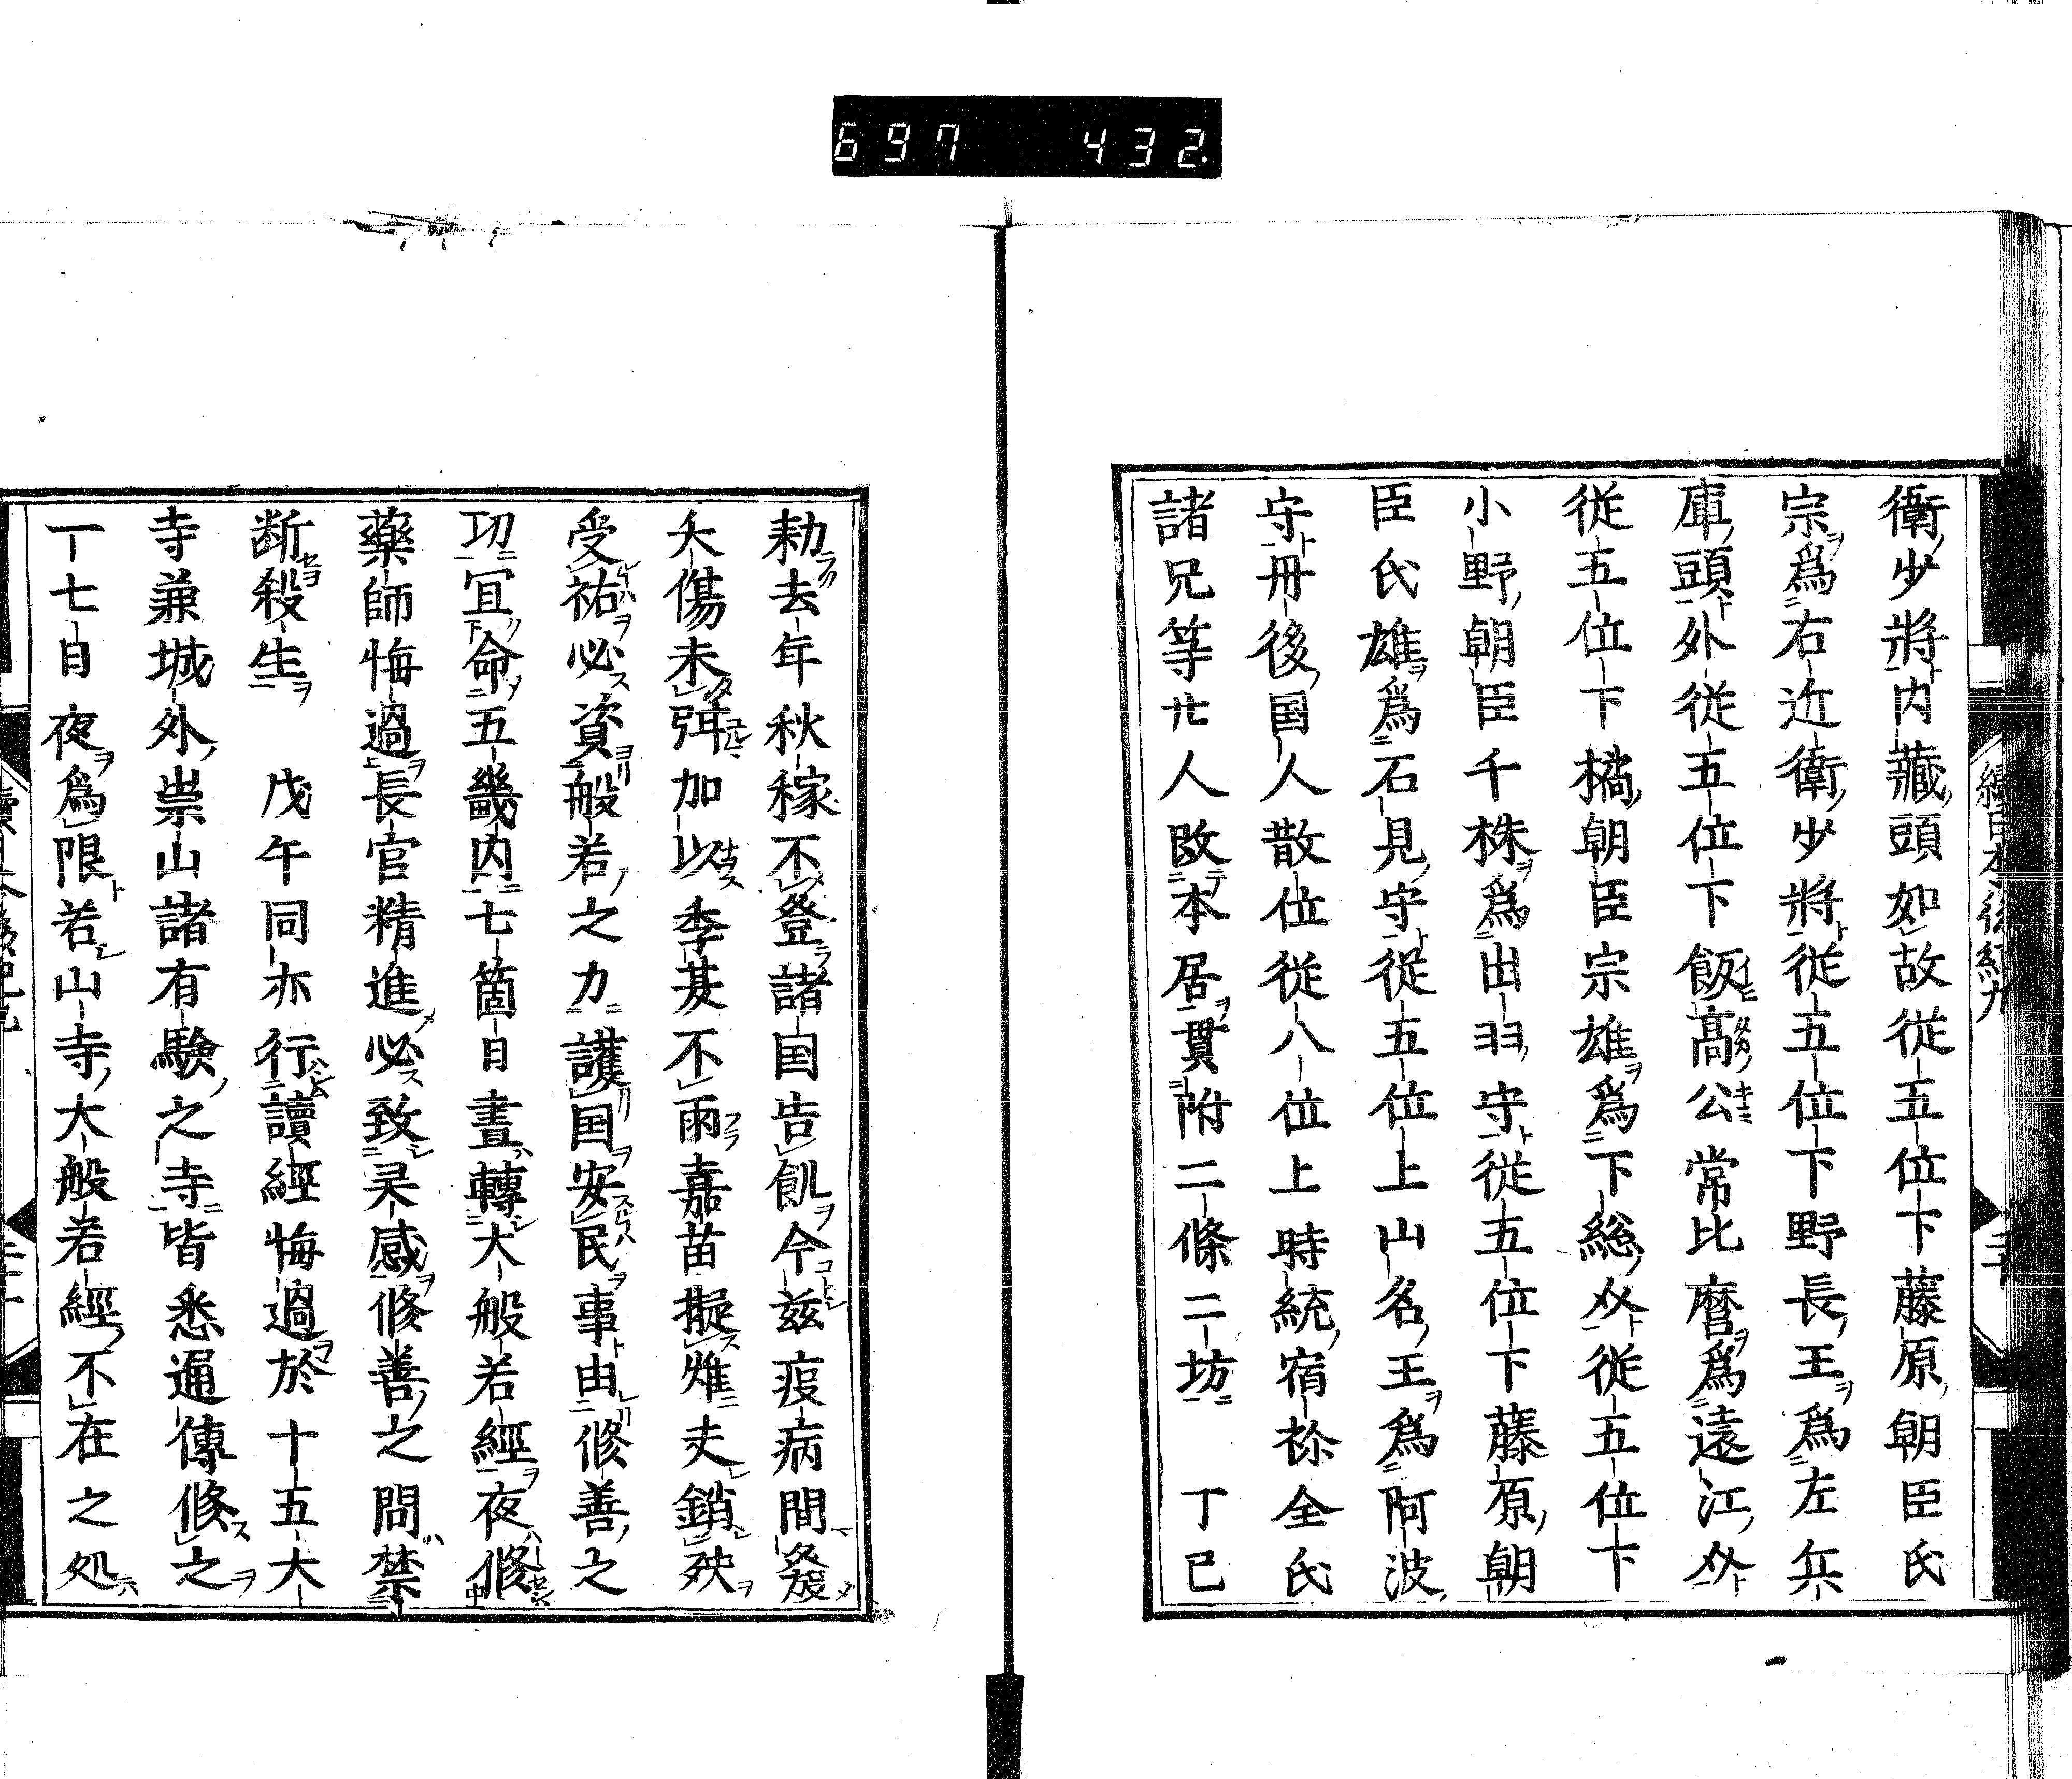 697 432.
衛少將内藏頭如故從五位下藤原朝臣氏
宗爲右近衛少將從五位下野長王爲左兵
庫頭外從五位下飯髙公常比麿爲遠江介
從五位下橘朝臣宗雄爲下総介從五位下
小野朝臣千株爲出羽守從五位下藤原朝
臣氏雄爲石見守從五位上山名王爲阿波
守丹後国人散位從八位上時統宿祢全氏
諸兄等廿人改本居貫附二條二坊 丁巳
續日本後紀九
勅去年秋稼不登諸国告飢今兹疫病間發
夭傷未弭加以季某不雨嘉苗擬燋夫銷殃
受祐必資般若之力護国安民事由修善之
功宜命五畿内七箇日晝轉大般若經夜修
藥師悔過長官精進必致灵感修善之間禁
断殺生 戊午同亦行讀經悔過於十五大
寺兼城外崇山諸有験之寺皆悉遍傳修之
一七日夜爲限若山寺大般若經不在之処